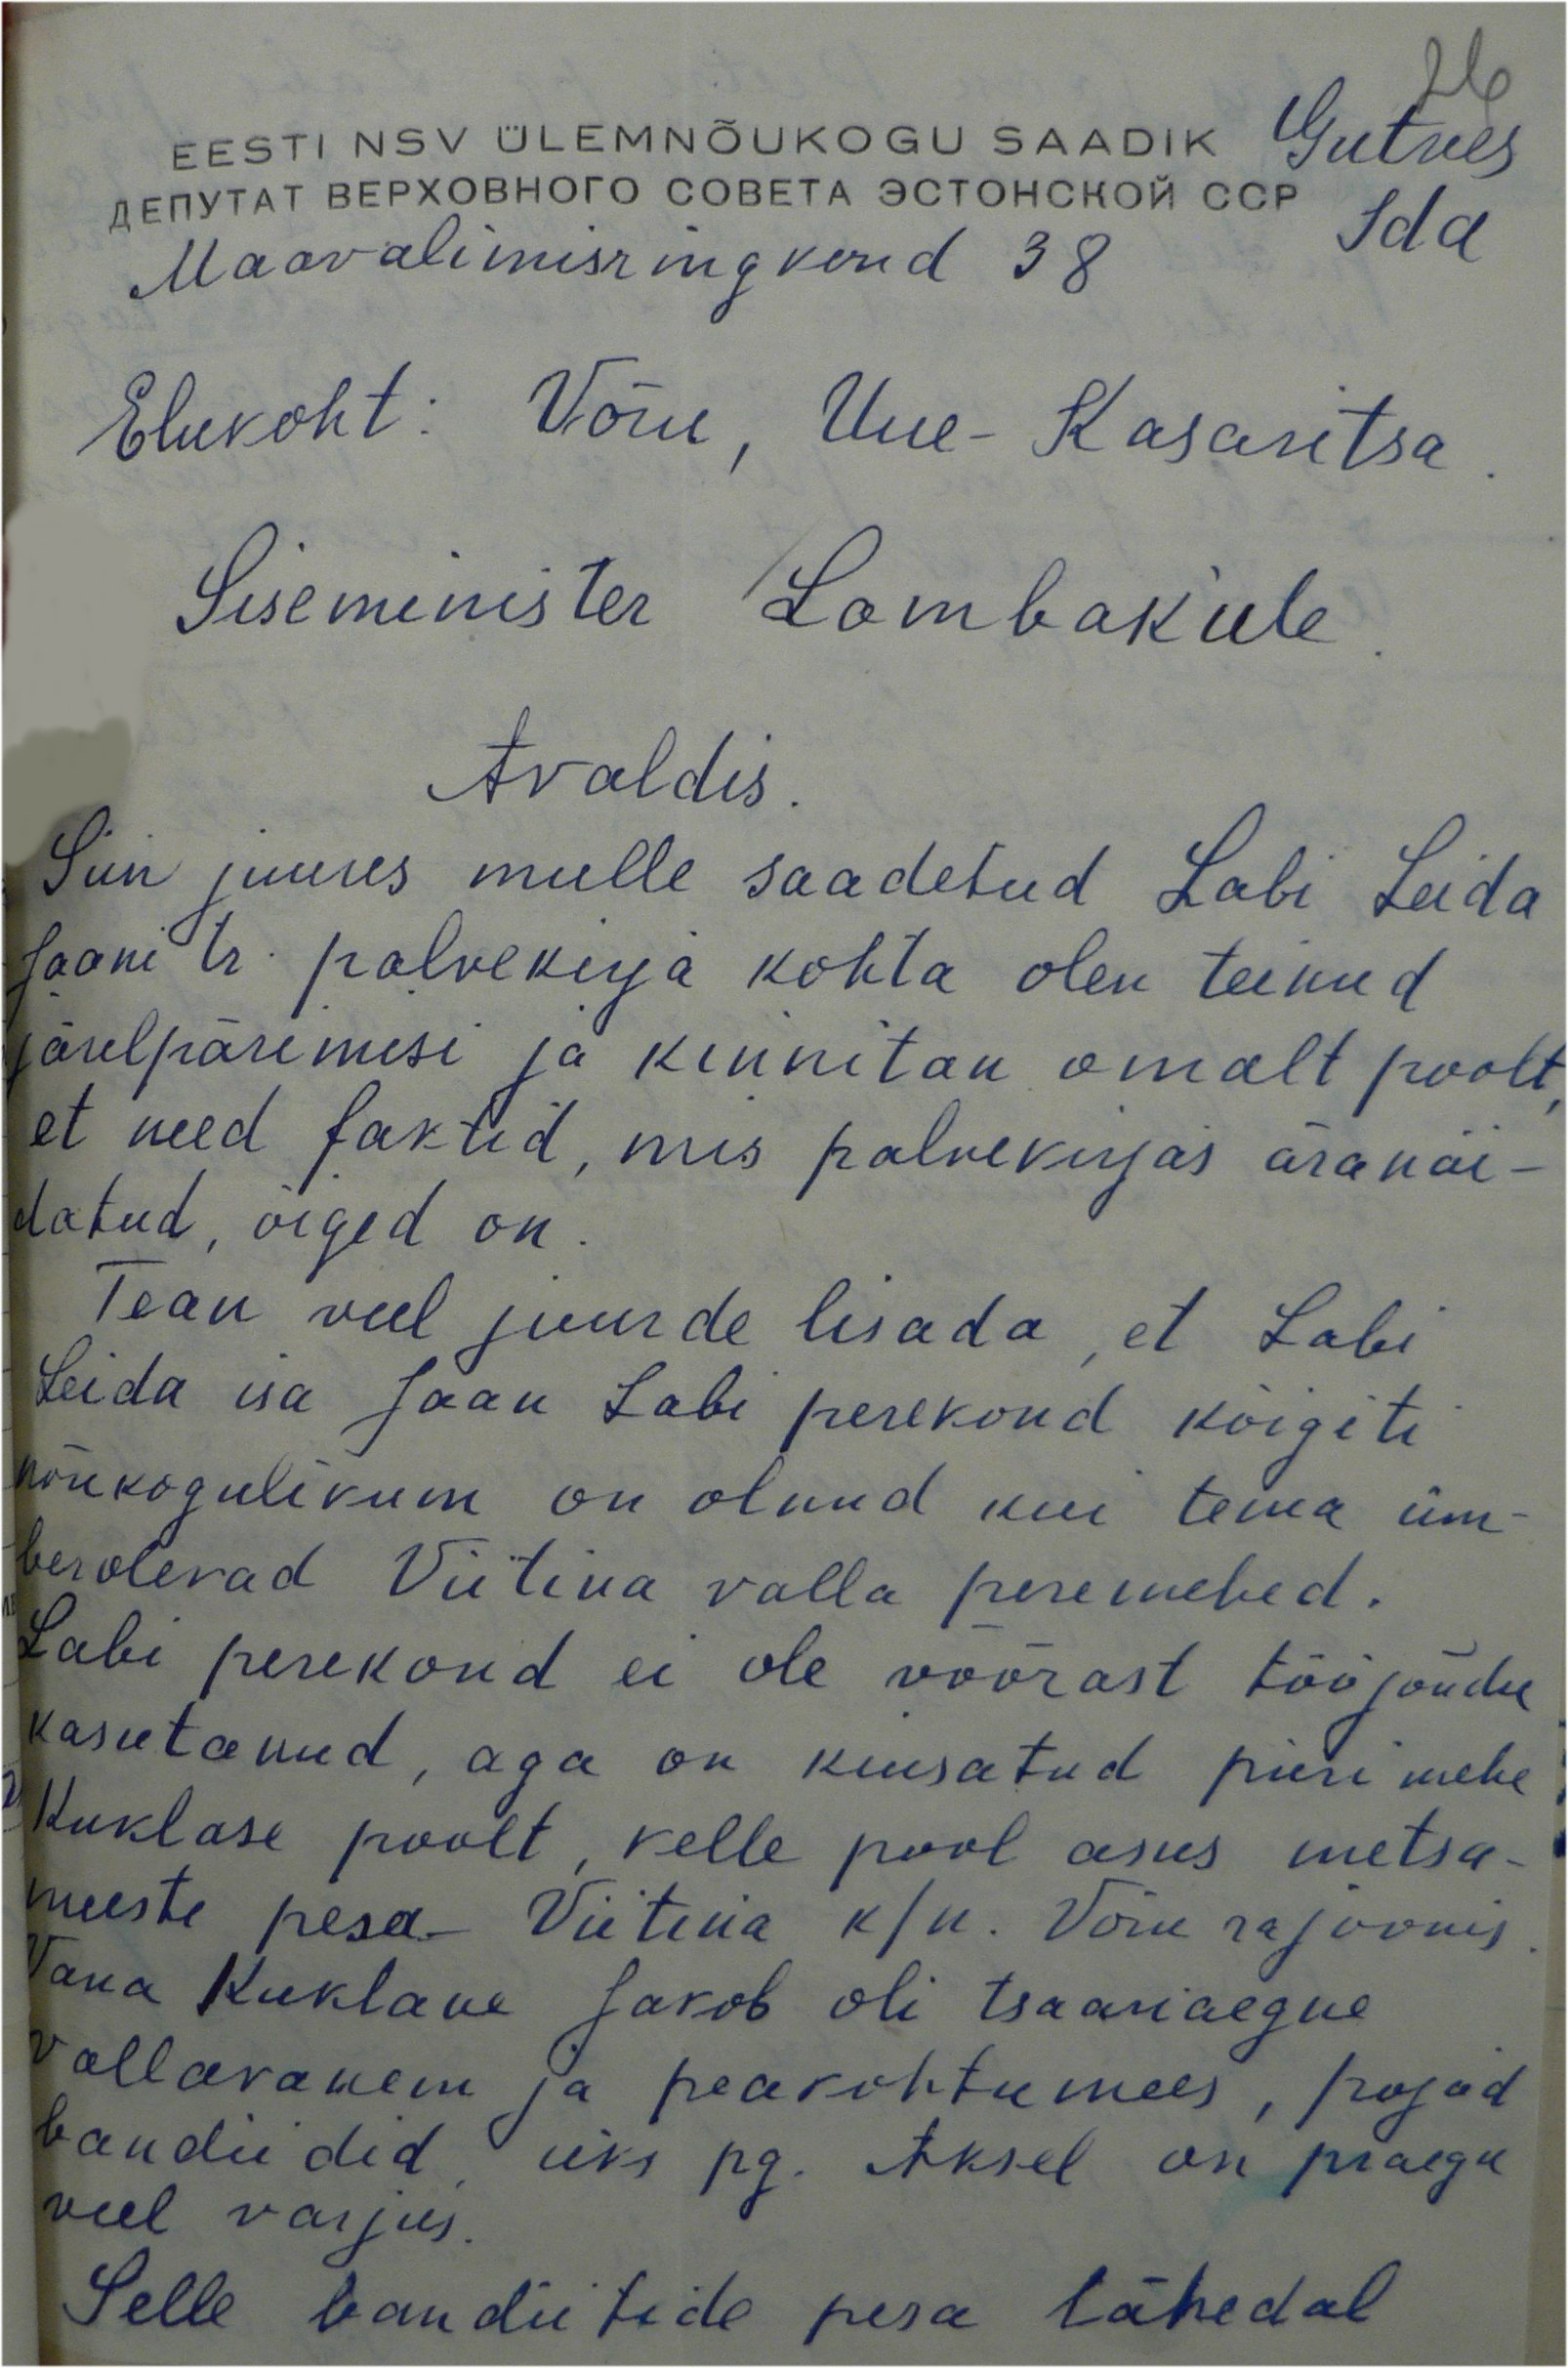 26
EESTI NSV ÜLEMNÕUKOGU SAADIK Gutves
ДЕПУТАТ ВЕРХОВНОГО СОВЕТА ЭСТОНСКОЙ ССР Ida
Maavalimisringkond 38
Elukoht: Võru, Uue-Kasaritsa.
Siseminister Lombakule.
Avaldis.
Siin juures mulle saadetud Labi Leida
Jaani tr. palvekirja kohta olen teinud
järelpärimisi ja kinnitan omalt poolt,
et need faktid, mis palvekirjas äranäi-
datud, õiged on.
Tean veel juurde lisada, et Labi
Leida isa Jaan Labi perekond kõigiti
nõukogulikum on olnud kui tema üm-
berolevad Viitina valla peremehed.
Labi perekond ei ole võõrast tööjõudu
kasutanud, aga on kiusatud piirimehe
Kuklase poolt, kelle pool asus metsa-
meeste pesa - Viitina k/n. Võru rajoonis.
Vana Kuklane Jakob oli tsaariaegne
vallavanem ja peakohtumees, pojad
bandiidid, üks pg. Aksel on praegu
veel varjus.
Selle bandiitide pesa lähedal